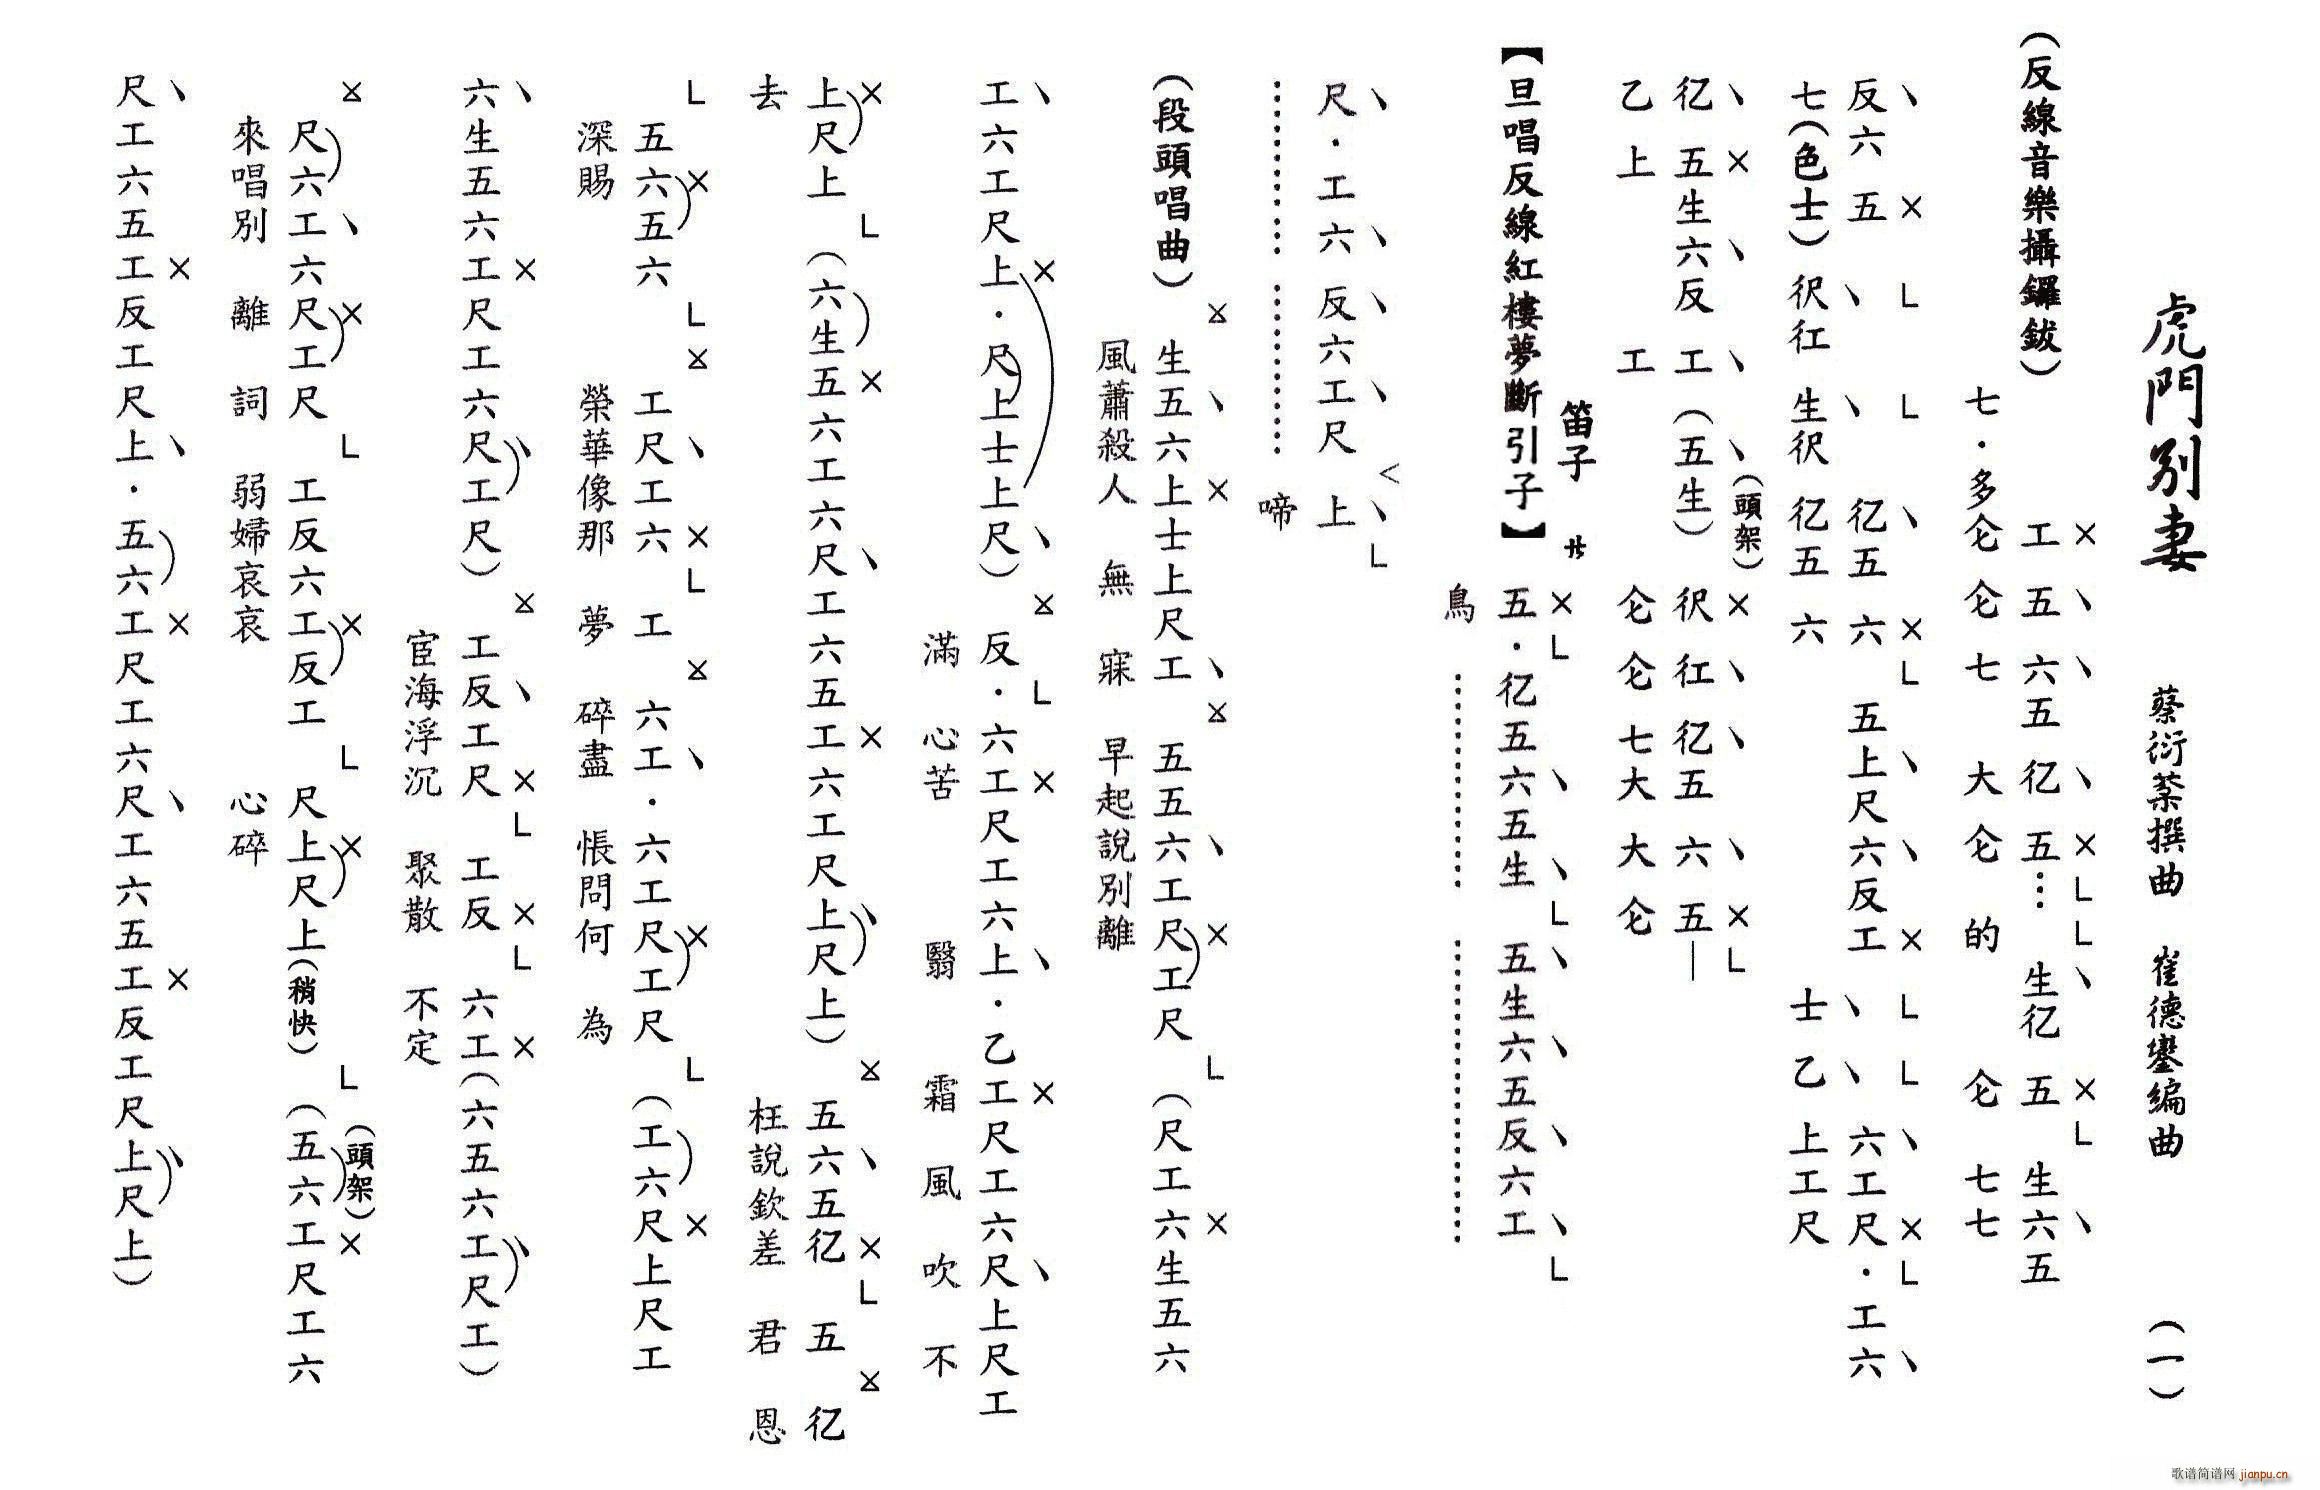 虎門別妻　蔡衍棻撰曲　崔德鑾編曲　（一）
（反線音樂攝鑼鈸）
工五六五㐆五…生㐆五生六五
七·多仑仑七大仑的仑七七
反六五㐆五六五上尺六反工六工尺·工六
七（色士）伬仜生伬㐆五六士乙上工尺
㐆五生六反工（五生）（頭架）伬仜㐆五六五—
乙上工仑仑七大大仑
笛子 サ
【旦唱反線紅樓夢斷引子】五·㐆五六五生五生六五反六工
鳥
尺·工六反六工尺上
啼
（段頭唱曲）生五六上士上尺工五五六工尺工尺（尺工六生五六
風蕭殺人無寐早起說別離
工六工尺上·尺上士上尺）反·六工尺工六上·乙工尺工六尺上尺工
滿心苦翳霜風吹不
上尺上（六生五六工六尺工六五工六工尺上尺上）五六五㐆五㐆
去枉說欽差君恩
五六五六工尺工六工六工·六工尺工尺（工六尺上尺工
深賜榮華像那夢碎盡悵問何為
六生五六工尺工六尺工尺）工反工尺工反六工（六五六工尺工）
宦海浮沉聚散不定
尺六工六尺工尺工反六工反工尺上尺上（稍快）（頭架）（五六工尺工六
來唱別離詞弱婦哀哀心碎
尺工六五工反工尺上·五六工尺工六尺工六五工反工尺上尺上）
歌谱简谱网 jianpu.cn